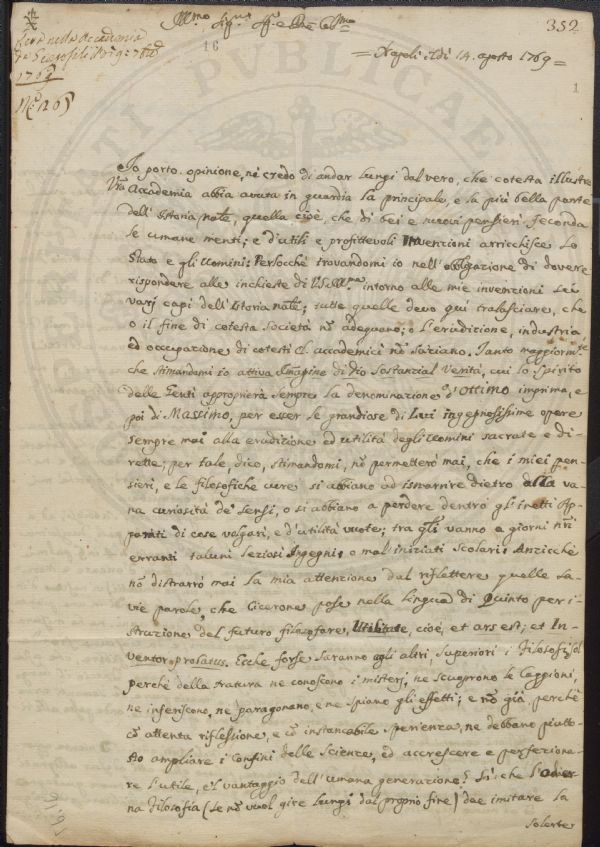 352
16
1
= Napoli a dì 14. agosto 1769 =
Letta nella Accademia
1769
N.º 126
Io porto opinione, nè credo di andar lungi dal vero, che cotesta illustre
Vra Accademia abbia avuta in guardia la principale, e la più bella parte
dell'Istoria nale, quella cioè, che di bei e nuovi pensieri feconda
le umane menti; e d'utili e profittevoli invenzioni arricchisce lo
Stato e gli Uomini. Persocchè trovandomi io nell'obbligazione di dovere
rispondere alle inchieste di intorno alle mie invenzioni su i
varj capi dell'Istoria nale; tutte quelle devo quì tralasciare, che
o il fine di cotesta Società nō adeguano; o l'erudizione, industria
ed occupazione di cotesti accademici nō saziano. Tanto maggiormte
che stimandomi io attiva Imagine di Dio Sostanzial Verità, cui lo Spirito
delle Genti approprierà sempre la denominazione d'Ottimo imprima, e
poi di Massimo, per esser le grandiose di Lui ingegnosissime opere
sempre mai alla erudizione ed utilità degli Uomini sacrate e di-
rette; per tale, dico, stimandomi, nō permetterò mai, che i miei pen-
sieri, e le filosofiche cure si abbiano ad ismarrire dietro alla va-
na curiosità de' sensi, o si abbiano a perdere dentro gl'inetti Ap-
parati di cose volgari, e d'utilità vuote; tra gli vanno a giorni nrī
erranti taluni Ingegni, o mal iniziati Scolari. Anzicchè
nō distrarrò mai la mia attenzione dal riflettere quelle sa-
vie parole, che Cicerone pose nella lingua di Quinto per i-
struzione del futuro filosofare, Utilitate, cioè, et ars est; et In-
ventor prolatus. Ecche forse saranno agli altri superiori i Filosofi sol
perchè della Natura ne conoscono i misterj; ne scuoprono le Caggioni,
ne inferiscono, ne paragonano, e ne spiano gli effetti; e nō già, perchè
cō attenta riflessione, e cō instancabile sperienza, ne debbano piutto-
sto ampliare i Confini delle Scienze, ed accrescere e perfeziona-
re l'utile, e'l vantaggio dell'umana generazione? Sì che l'odier-
na Filosofia (se nō vuol gire lungi dal proprio fine) dee imitare la
solerte